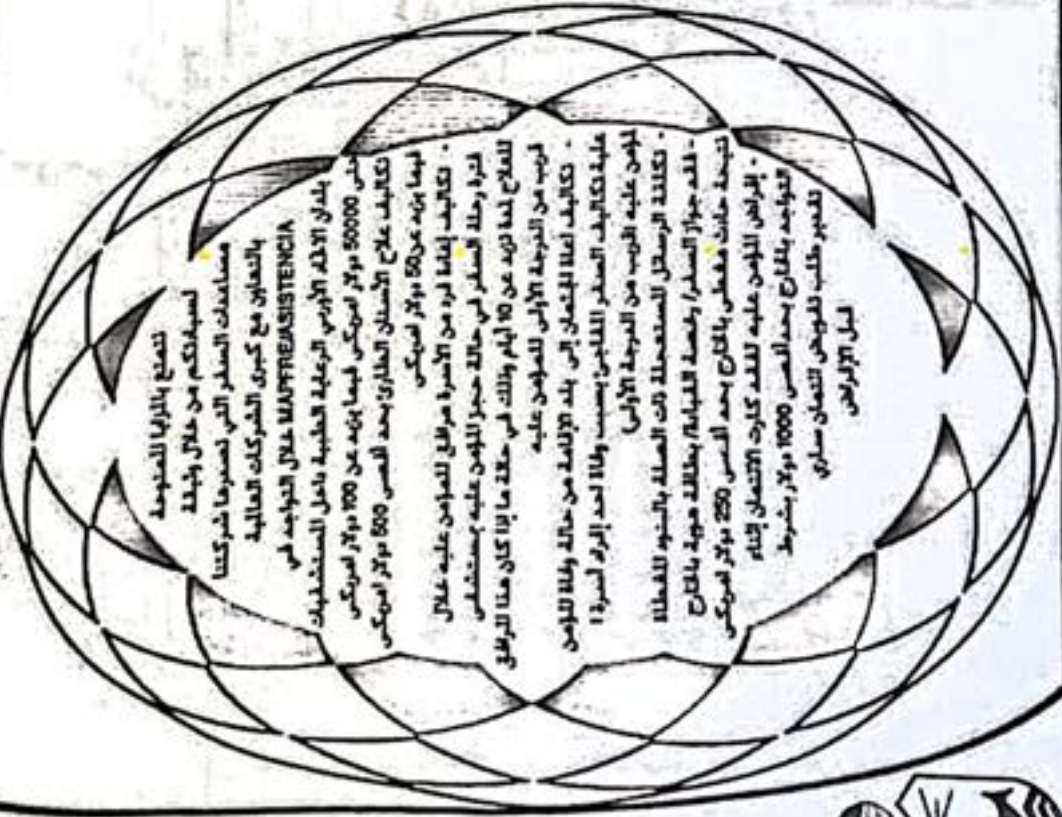 تتمتع بالمزايا الممنوحة
لسيادتكم من خلال وثيقة
مساعدات السفر التي تصدرها شركتنا
بالتعاون مع كبرى الشركات العالمية
MAPFREASISTENCIA خلال التواجد في
بلدان الاتحاد الأوربي الرعاية الطبية داخل المستشفيات
حتى 50000 دولار امريكي فيما يزيد عن 100 دولار امريكي
تكاليف علاج الأسنان الطارئ بحد أقصى 500 دولار امريكي
فيما يزيد عن 50 دولار امريكي
- تكاليف إقامة فرد من الأسرة مرافق للمؤمن عليه خلال
فترة رحلة السفر في حالة حجز المؤمن عليه بمستشفى
للعلاج لمدة تزيد عن 10 أيام وذلك في حالة ما إذا كان هذا المرافق
قريب من الدرجة الأولى للمؤمن عليه
- تكاليف اعادة الجثمان إلى بلد الإقامة من حالة وفاة المؤمن
عليه تكاليف السفر المفاجئ بسبب وفاة احد إفراد أسرة ا
لمؤمن عليه القريب من الدرجة الأولى
- تكلفة الرسائل المستعجلة ذات الصلة بالبنود المغطاة
- فقد جواز السفر/ رخصة القيادة/ بطاقة هوية بالخارج
نتيجة حادث مغطى بالخارج بحد أقصى 250 دولار امريكي
- إقراض المؤمن عليه لفقد كارت الائتمان إثناء
التواجد بالخارج بحد أقصى 1000 دولار بشرط
تقديم طلب تفويض ائتمان ساري
قبل الإقراض